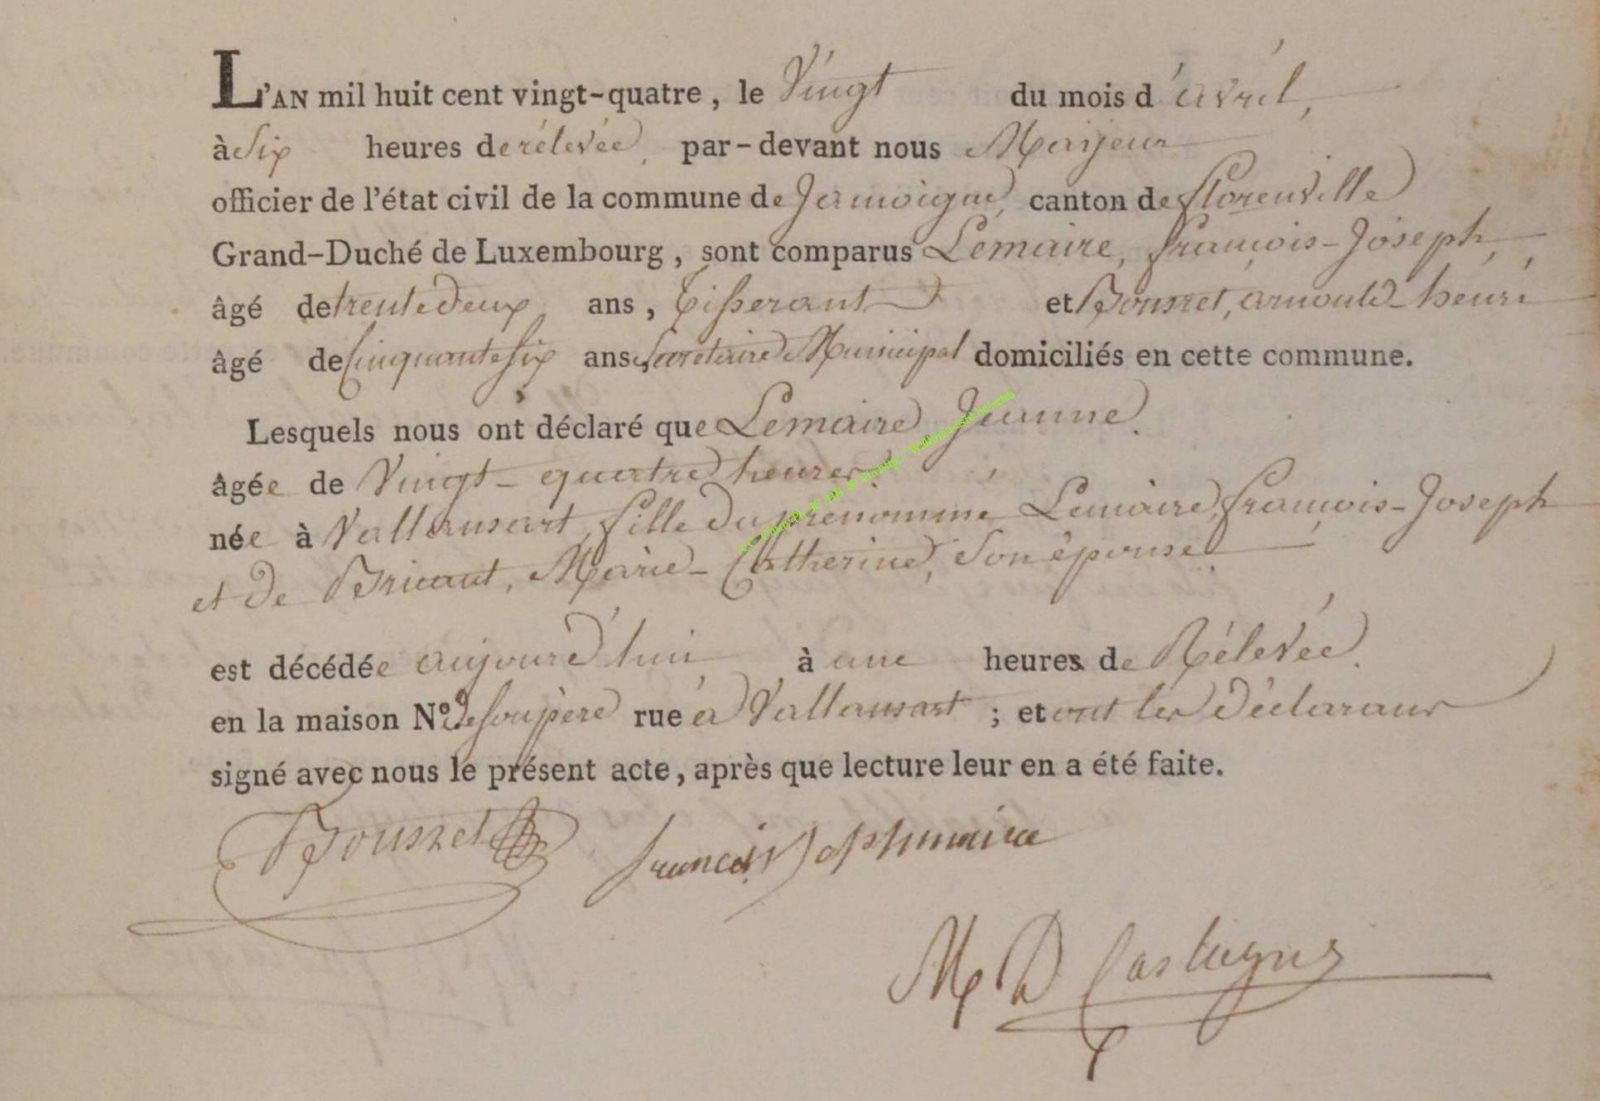 L'AN mil huit cent vingt-quatre, le Vingt du mois d'avril,
à Six heures de rélevée, par-devant nous Maijeur
officier de l'état civil de la commune de Jamoigne, canton de florenville
Grand-Duché de Luxembourg, sont comparus Lemaire, françois-Joseph,
âgé de trente deux ans, Tisserant et Bousret, arnould henri
âgé de Cinquante six ans Secretaire Municipal domiciliés en cette commune.
Lesquels nous ont déclaré que Lemaire Jeanne.
âgée de Vingt-quatre heures
née à Vallansart, fille du prénommé Lemaire, françois-Joseph
et de Bricant, Marie-Catherine, Son épouse.
est décédée aujourd'hui à une heures de Rélevée.
en la maison N° de son père rue à Vallansart ; et ont les déclarans
signé avec nous le présent acte, après que lecture leur en a été faite.
Bousret
M D